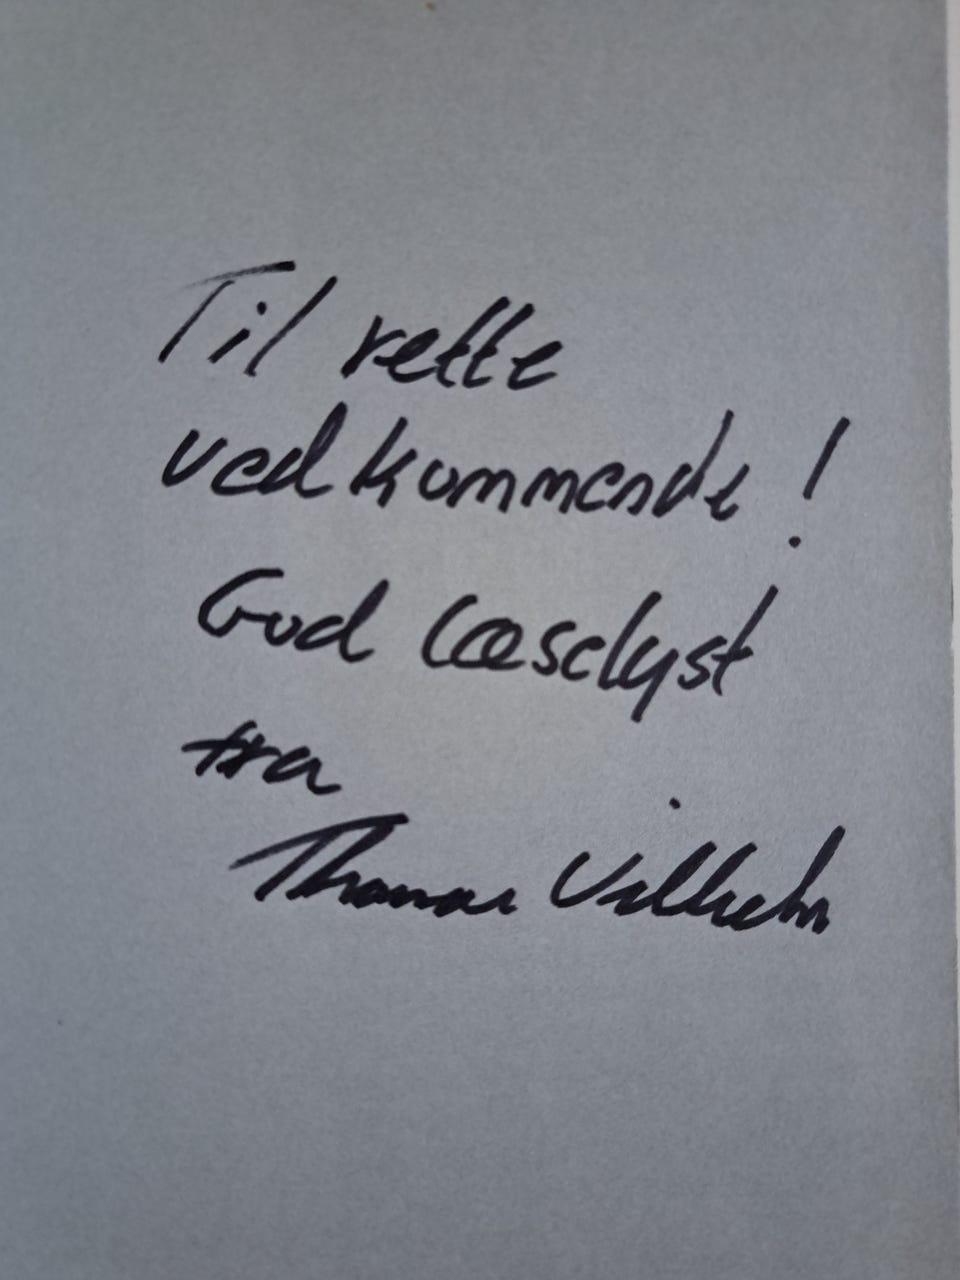 Til rette
vedkommende!
God læselyst
fra
Thomas Vilhelm